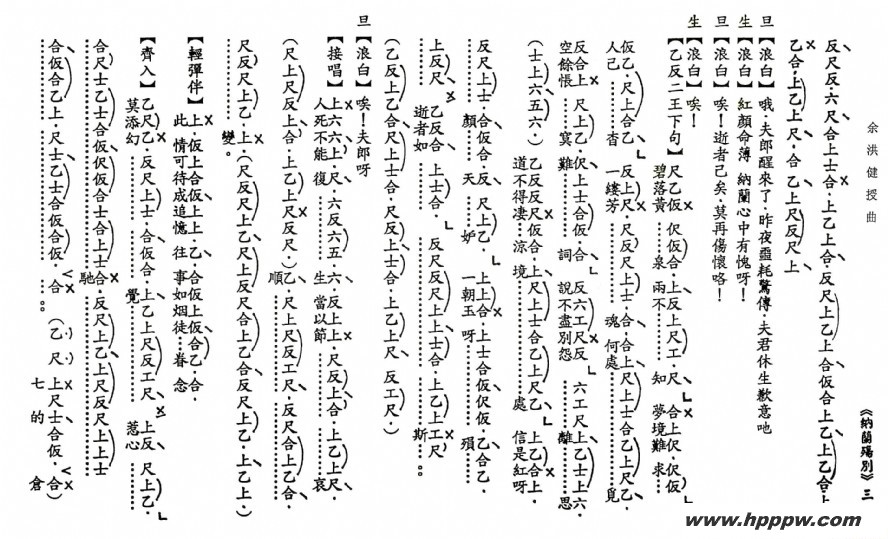 余洪健授曲
《納蘭殤別》三
反尺反·六尺合上士合·上乙上合·反尺上乙上合仮合上乙上乙合上
乙合·上乙上尺·合 乙上尺反尺上
旦【浪白】哦·夫郎醒來了·昨夜噩耗驚傳·夫君休生歉意吔
生【浪白】紅顏命薄 納蘭心中有愧呀！
旦【浪白】唉！逝者已矣·莫再傷懷咯！
生【浪白】唉！
【乙反二王下句】尺乙仮 伬仮合·上反上尺工·尺 合上伬·伬仮
碧落黃……泉 兩不……知 夢境難 求……
仮乙·尺上合乙 反上尺·尺反尺上士·合·合上尺上士合乙上尺乙·
人己……杳 一縷芳……魂 何處……覓
反合上 尺上乙·伬上士合仮·合 反六工尺反 六工尺上乙士上六·
空餘悵……寞 難……詞 說不盡別怨……離……思
(士上六五六·) 乙反反尺仮合·上尺上士合乙上尺乙 上乙合上·
道不得凄……涼 境……處 信是紅呀
反尺上士·合仮合·反 尺上乙· 上上合·上士合仮伬仮·乙合乙·
顏……天……妒 一朝玉 呀……殞
上反尺 乙反合 上士合· 反尺反尺上上士合·上乙上工尺
……逝者如……斯……。
(乙反上乙合尺上士合·尺反上士合·上乙上尺 反工尺·)
旦【浪白】唉！夫郎呀
【接唱】上六六上·尺 六反六五 六·反上上·尺反上合·上乙上尺·
人死不能 復……生 當以節……哀
(尺上尺反上合·上乙上尺反尺·) 乙·尺上尺反工尺·反尺合上乙合·
順……
尺反尺上乙·上·(尺反尺上乙上尺上乙合反尺上乙·上乙上·)
……變。
【輕彈伴】上·仮上合仮上上·乙·合仮上仮合乙·合·
此 情可待成追憶 往 事如烟徒……眷 念
【齊入】乙尺乙·反尺上士·合仮合·上乙上尺反工尺 上反 尺上乙·
莫添幻……覺……惹心……
合尺士乙士合仮伬仮合士合上士合·反尺上乙上尺反尺上上士
……馳……
合仮合乙上·尺士乙士合仮合仮·合 (乙 尺 上尺士合仮·合)
……。 七 的 倉
www.hpppw.com